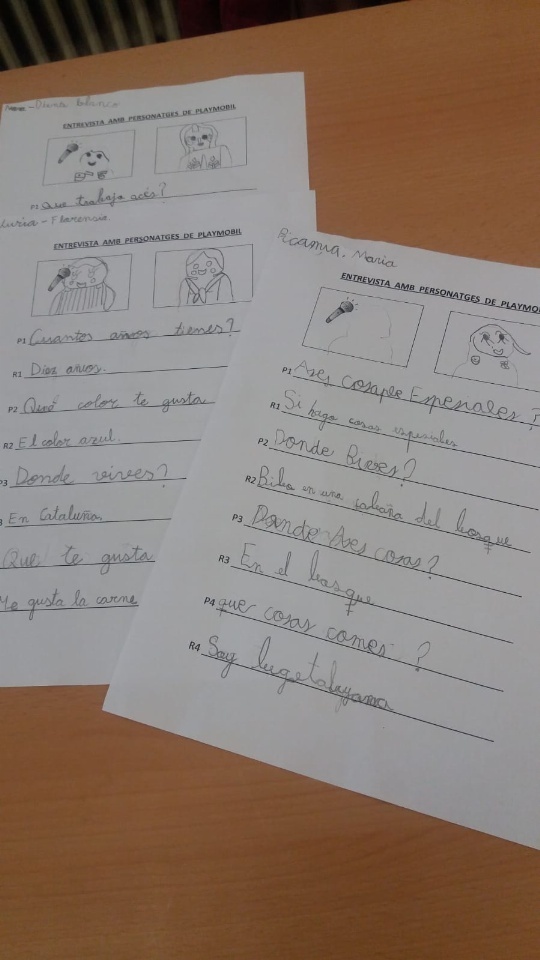 Diana Blanco
ENTREVISTA AMB PERSONATGES DE PLAYMOBIL
P1 Que trabajo acés?
Nuria - Florencia.
ENTREVISTA AMB PERSONATGES DE PLAYMOBIL
P1 Cuantos años tienes?
R1 Diez años.
P2 Qué color te gusta
R2 El color azul.
P3 Donde vives?
En Cataluña.
Que te gusta
Me gusta la carne
Maria
ENTREVISTA AMB PERSONATGES DE PLAYMO
P1 Ases cosas Espesiales?
R1 Si hago cosas espesiales
P2 Donde Bives?
R2 Bibo en una cabaña del bosque
P3 Donde Ases cosas?
R3 En el bosque
P4 que cosas comes?
R4 Soy